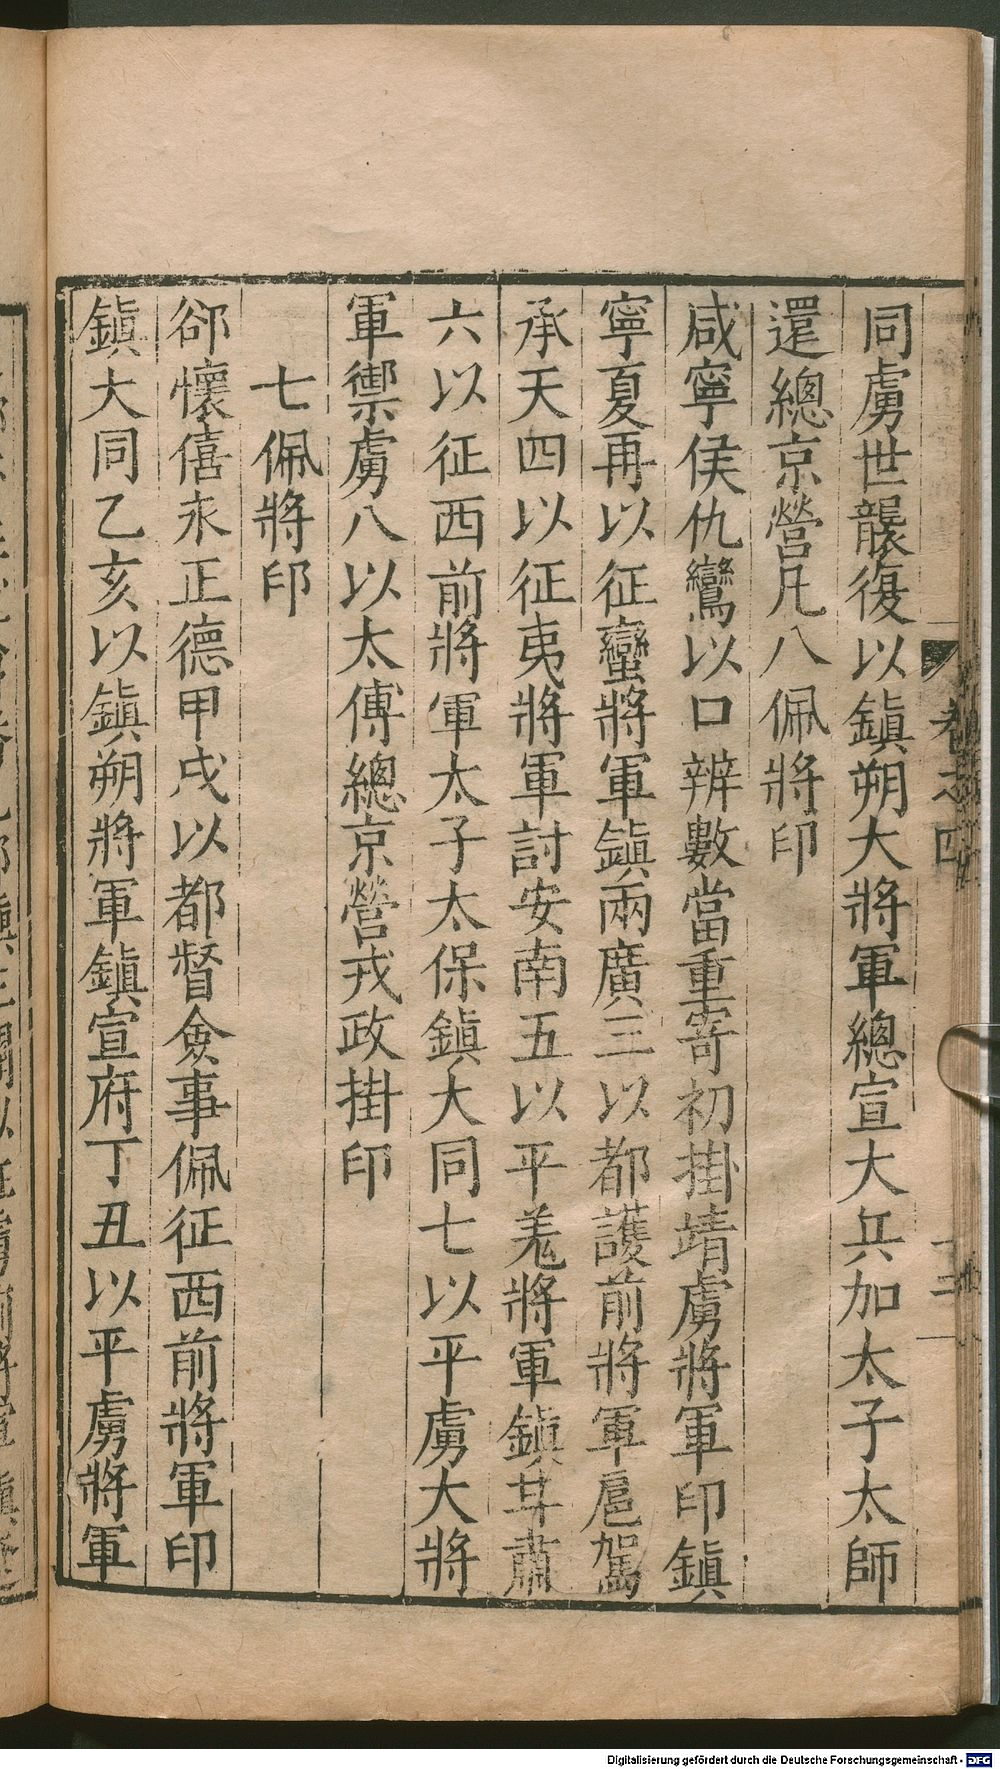 同虜世襲復以鎮朔大將軍總宣大兵加太子太師
還總京營凡八佩將印
咸寧侯仇鸞以口辨數當重寄初掛靖虜將軍印鎮
寧夏再以征蠻將軍鎮兩廣三以都護前將軍扈駕
承天四以征夷將軍討安南五以平羗將軍鎮甘肅
六以征西前將軍太子太保鎮大同七以平虜大將
軍禦虜八以太傅總京營戎政掛印
七佩將印
郤懷僖永正德甲戌以都督僉事佩征西前將軍印
鎮大同乙亥以鎮朔將軍鎮宣府丁丑以平虜將軍
卷之四
Digitalisierung gefördert durch die Deutsche Forschungsgemeinschaft - DFG